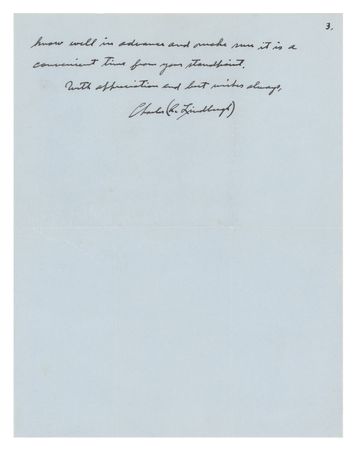 3.
know well in advance and make sure it is a
convenient time from your standpoint.
With appreciation and best wishes always,
Charles (A. Lindbergh)